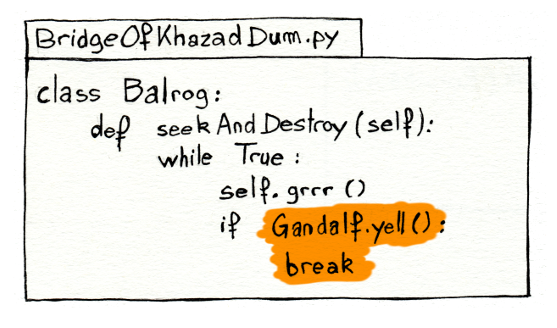 BridgeOfKhazadDum.py
class Balrog:
def seekAndDestroy(self):
while True:
self.grrr()
if Gandalf.yell():
break